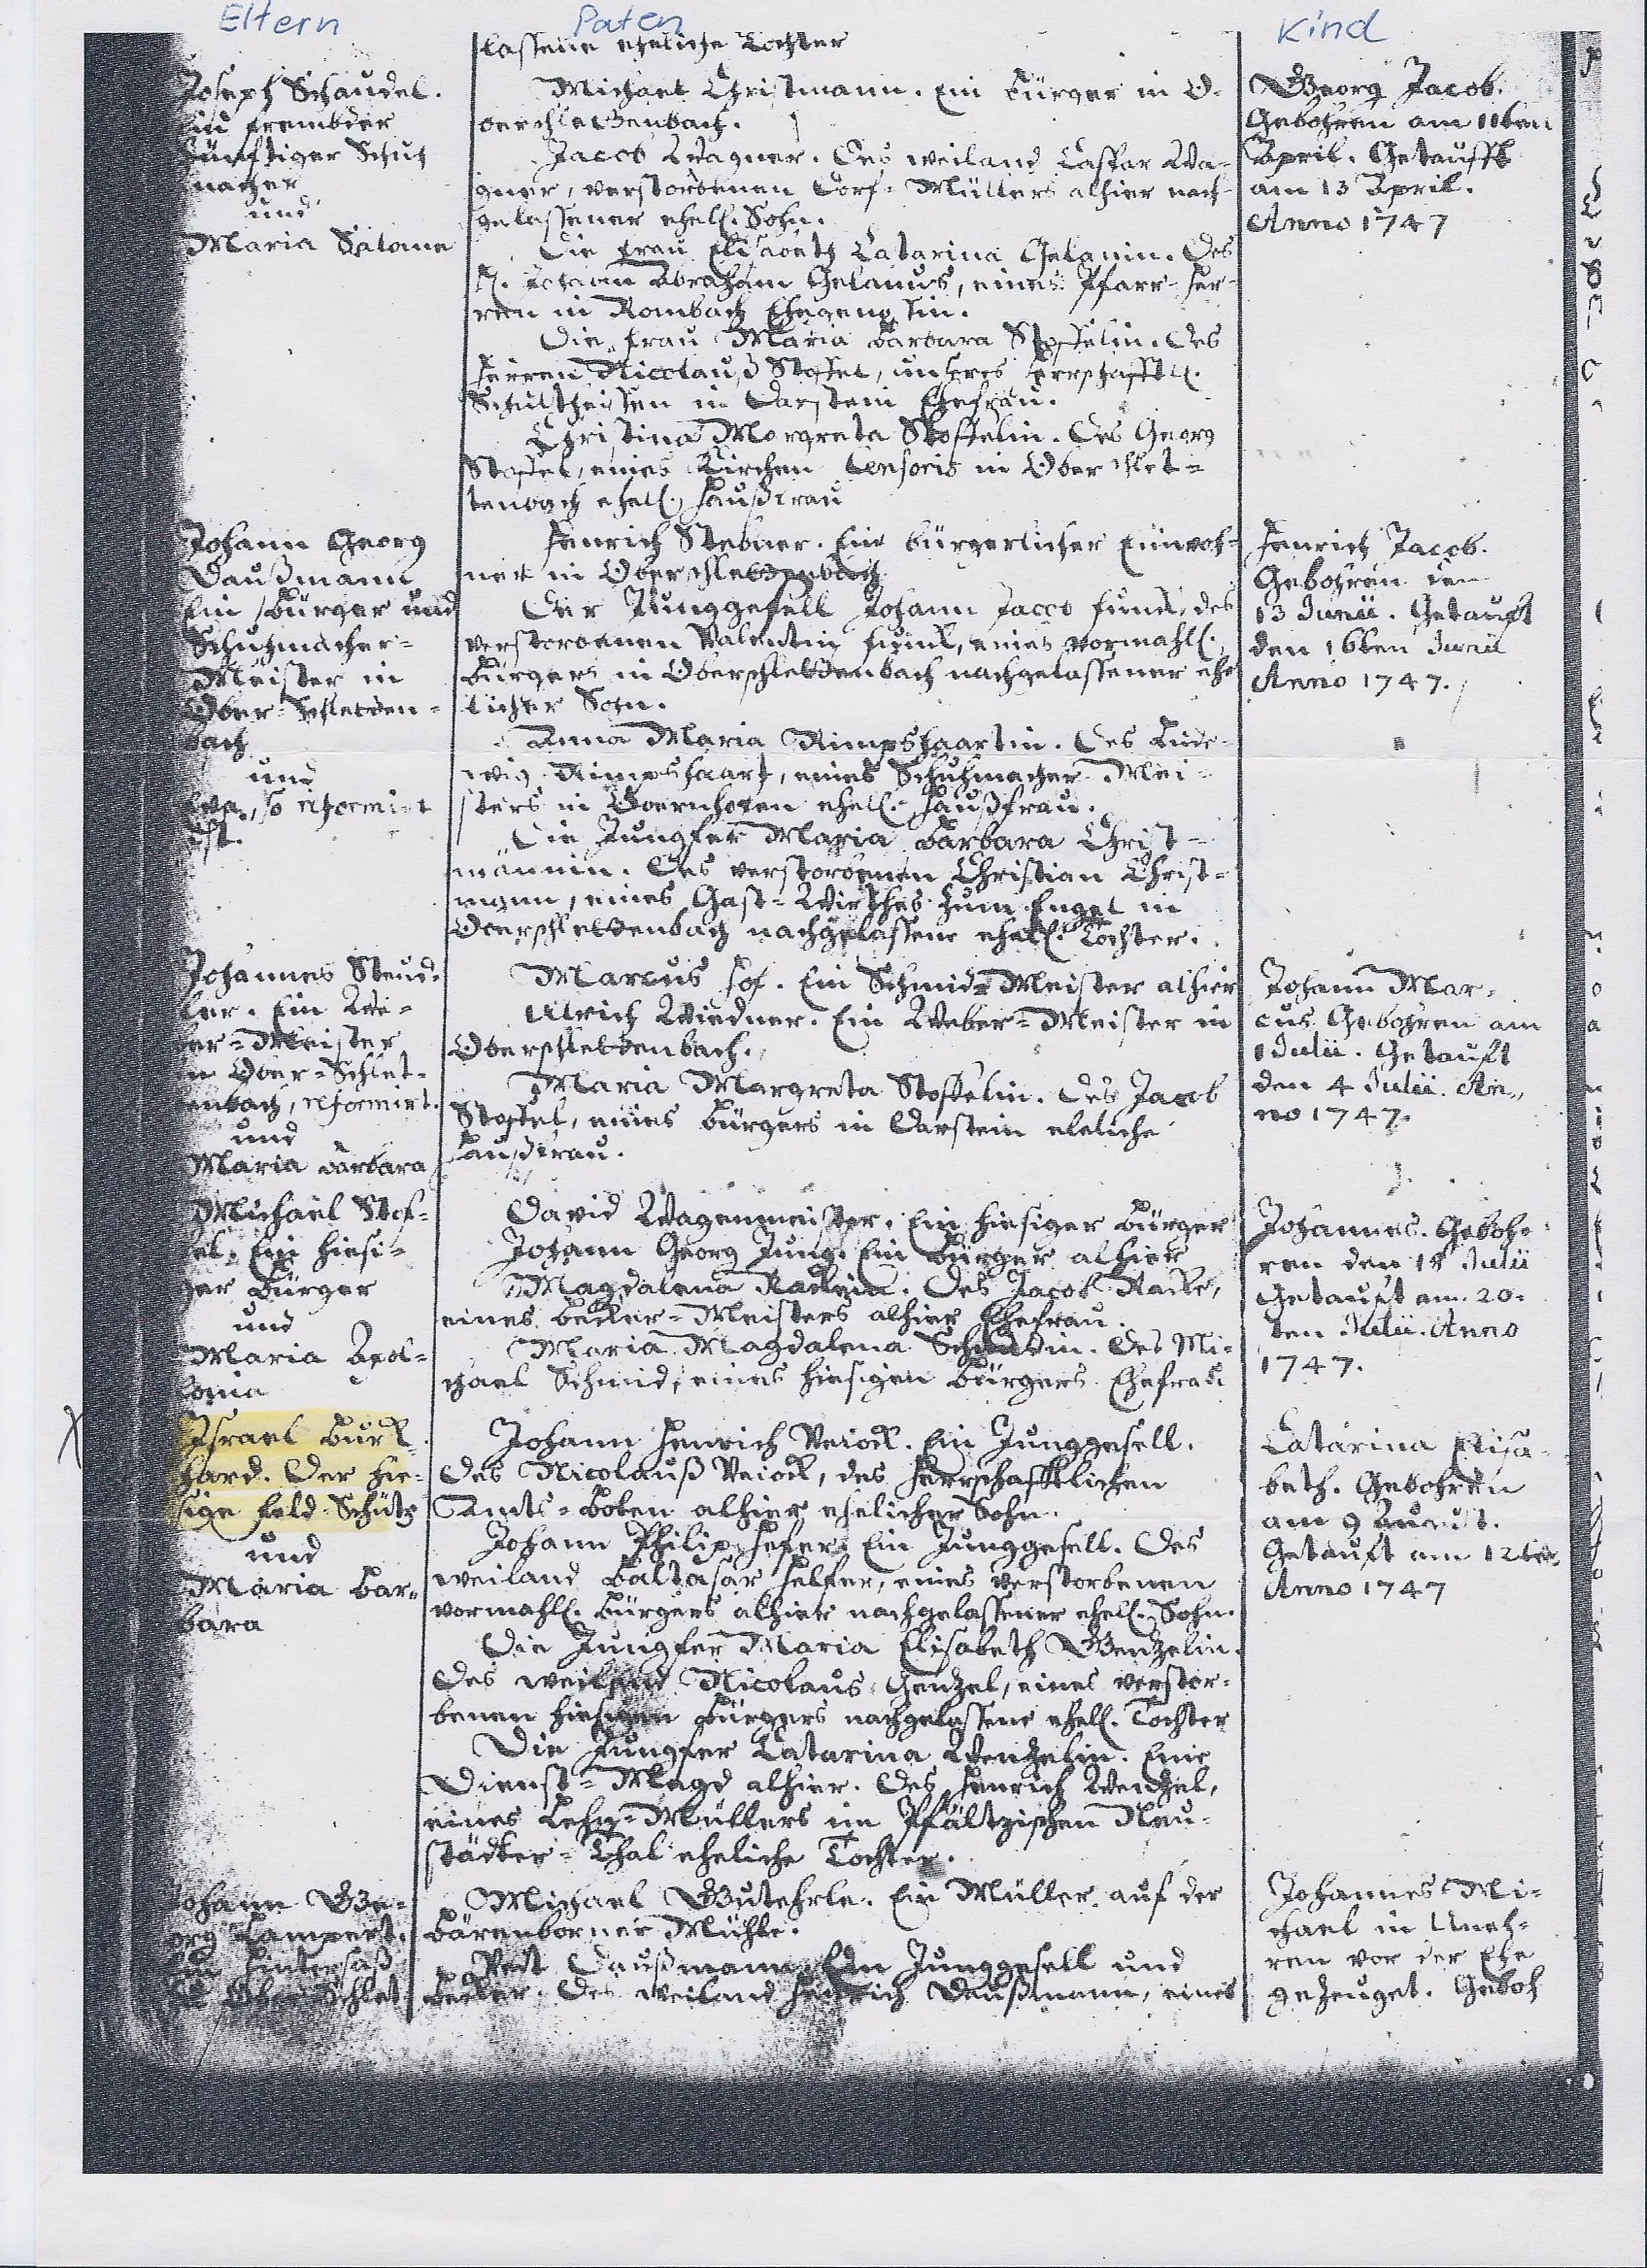 Eltern
Paten
Kind
lassene eheliche Tochter
Joseph Schaudel.
Ein frembder
zünftiger Schuh
macher
und
Maria Salome
Michael Christmann. Ein Bürger in O-
berschlettenbach.
Jacob Wagner. Des weiland Caspar Wa-
gner, verstorbenen Dorf-Müllers alhier nach-
gelassener ehel. Sohn.
Die Frau Elisabeth Catarina Gelanin. Des
H. Johann Abraham Gelanus, eines Pfarr-Her-
ren in Rombach Ehegenossin.
Die Frau Maria Barbara Stoffelin. Des
Herren Nicolauß Stoffel, unseres Herrschafftl.
Schultheissen in Darstein Ehefrau.
Christina Morgreta Stoffelin. Des Georg
Stoffel, eines Kirchen Censoris in Oberschlet-
tenbach ehel. Haußfrau
Georg Jacob.
Gebohren am 11ten
April. Getaufft
am 13 April.
Anno 1747
Johann Georg
Daußmann
Ein Bürger und
Schuhmacher-
Meister in
Ober-Schletten-
bach
und
Eva, so reformirt
ist.
Henrich Stebner. Ein bürgerlicher Einwoh-
ner in Oberschlettenbach
Der Junggesell Johann Jacob Funck, des
verstorbenen Valentin Funck, eines vormahl.
Bürgers in Oberschlettenbach nachgelassener ehe
licher Sohn.
Anna Maria Rimpshaartin. Des Lude-
wig Rimpshaart, eines Schuhmacher Mei-
sters in Obernhofen ehel. Haußfrau.
Die Jungfer Maria Barbara Christ-
männin. Des verstorbenen Christian Christ-
mann, eines Gast-Wirthes zum Engel in
Oberschlettenbach nachgelassene ehel. Tochter.
Henrich Jacob.
Gebohren den
13 Junii. Getauft
den 16ten Junii
Anno 1747.
Johannes Steud-
ler. Ein We-
ber-Meister
in Ober-Schlet-
tenbach, reformirt.
und
Maria Barbara
Marcus Hof. Ein Schmidt Meister alhier
Ulrich Wiedner. Ein Weber-Meister in
Oberschlettenbach.
Maria Margreta Stoffelin. Des Jacob
Stoffel, eines Bürgers in Darstein eheliche
Haußfrau.
Johann Mar-
cus. Gebohren am
1 Julii. Getauft
den 4 Julii. An-
no 1747.
Michael Stof-
fel. Ein hiesi-
ger Bürger
und
Maria Apol-
lonia
David Wagenmeister. Ein hiesiger Bürger
Johann Georg Jung. Ein Bürger alhier
Magdalena Rackein. Des Jacob Racke,
eines Becker-Meisters alhier Ehefrau.
Maria Magdalena Schmidin. Des Mi-
chael Schmid, eines hiesigen Bürgers Ehefrau
Johannes. Geboh-
ren den 18 Julii
Getauft am 20-
ten Julii. Anno
1747.
Israel Burk-
hard. Der hie-
sige Feld-Schütz
und
Maria Bar-
bara
Johann Henrich Veiock. Ein Junggesell.
Des Nicolauß Veiock, des Herrschafftlichen
Amts-Boten alhier ehelicher Sohn.
Johann Philip Hefer. Ein Junggesell. Des
weiland Baltasar Helfer, eines verstorbenen
vormahl. Bürgers alhier nachgelassener ehel. Sohn.
Die Jungfer Maria Elisabeth Genzelin.
Des weiland Nicolaus Genzel, eines verstor-
benen hiesigen Bürgers nachgelassene ehel. Tochter
Die Jungfer Catarina Wenzelin. Eine
Dienst-Magd alhier. Des Henrich Wenzel,
eines Lehn-Müllers im Pfältzischen Neu-
städter-Thal eheliche Tochter.
Catarina Elisa-
beth. Gebohren
am 9 August.
Getauft am 12ten
Anno 1747
Johann Ge-
org Lampert.
Ein Hintersaß
in Ober-Schlet-
Michael Gutehrle. Ein Müller auf der
Bärenborner Mühle.
Veit Daußmann. Ein Junggesell und
Becker. Des weiland Henrich Daußmann, eines
Johannes Mi-
chael in Uneh-
ren vor der Ehe
gezeuget. Geboh